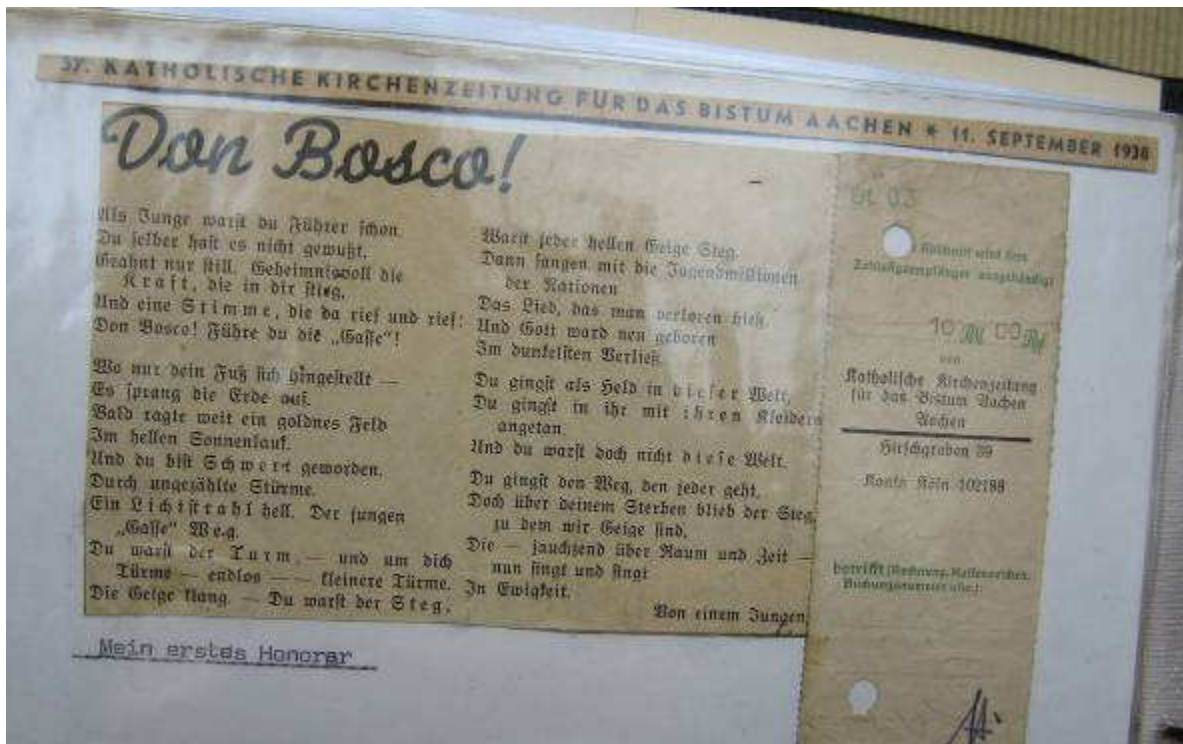 37. KATHOLISCHE KIRCHENZEITUNG FÜR DAS BISTUM AACHEN * 11. SEPTEMBER 1938
Don Bosco!
Als Junge warst du Führer schon.
Du selber hast es nicht gewußt,
Geahnt nur still. Geheimnisvoll die
Kraft, die in dir stieg,
Und eine Stimme, die da rief und rief:
Don Bosco! Führe du die „Gasse“!
Wo nur dein Fuß sich hingestellt —
Es sprang die Erde auf.
Bald ragte weit ein goldnes Feld
Im hellen Sonnenlauf.
Und du bist Schwert geworden.
Durch ungezählte Stürme.
Ein Lichtstrahl hell. Der jungen
„Gasse“ Weg.
Du warst der Turm, — und um dich
Türme — endlos — — kleinere Türme.
Die Geige klang. — Du warst der Steg,
Warst jeder hellen Geige Steg.
Dann sangen mit die Jugendmillionen
der Nationen
Das Lied, das man verloren hieß.
Und Gott ward neu geboren
Im dunkelsten Verließ.
Du gingst als Held in dieser Welt,
Du gingst in ihr mit ihren Kleidern
angetan.
Und du warst doch nicht diese Welt.
Du gingst den Weg, den jeder geht,
Doch über deinem Sterben blieb der Steg,
zu dem wir Geige sind,
Die — jauchzend über Raum und Zeit —
nun singt und singt
In Ewigkeit.
Von einem Jungen
Abschnitt wird dem
Zahlungsempfänger ausgehändigt
10 RM 00 Rpf
von
Katholische Kirchenzeitung
für das Bistum Aachen
Aachen
Hirschgraben 39
Konto Köln 102188
betrifft (Rechnung, Kassenzeichen,
Buchungsnummer usw.):
Mein erstes Honorar